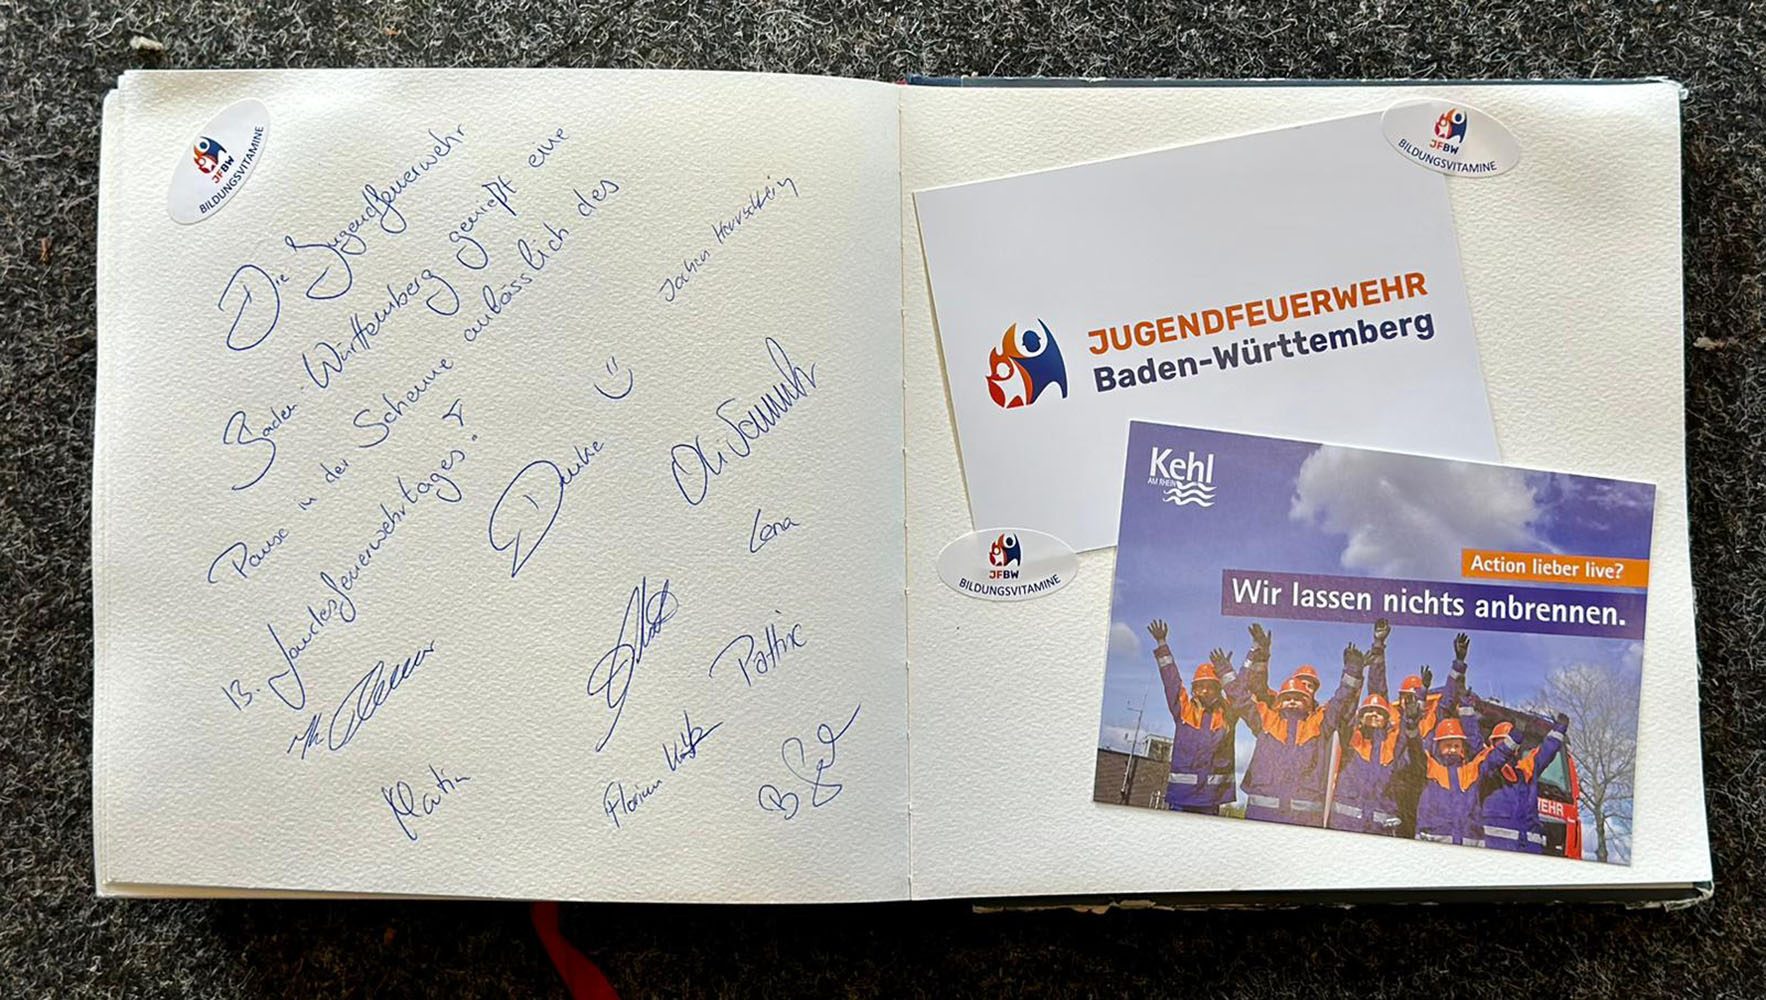 JFBW
BILDUNGSVITAMINE
Die Jugendfeuerwehr
Baden Württemberg genießt eine
Pause in der Scheune anlässlich des
13. Landesfeuerwehrtages.
Danke
Jochen
Lena
Pattric
Martin
Florian
B
JFBW
BILDUNGSVITAMINE
JUGENDFEUERWEHR
Baden-Württemberg
JFBW
BILDUNGSVITAMINE
Kehl
AM RHEIN
Action lieber live?
Wir lassen nichts anbrennen.
WEHR